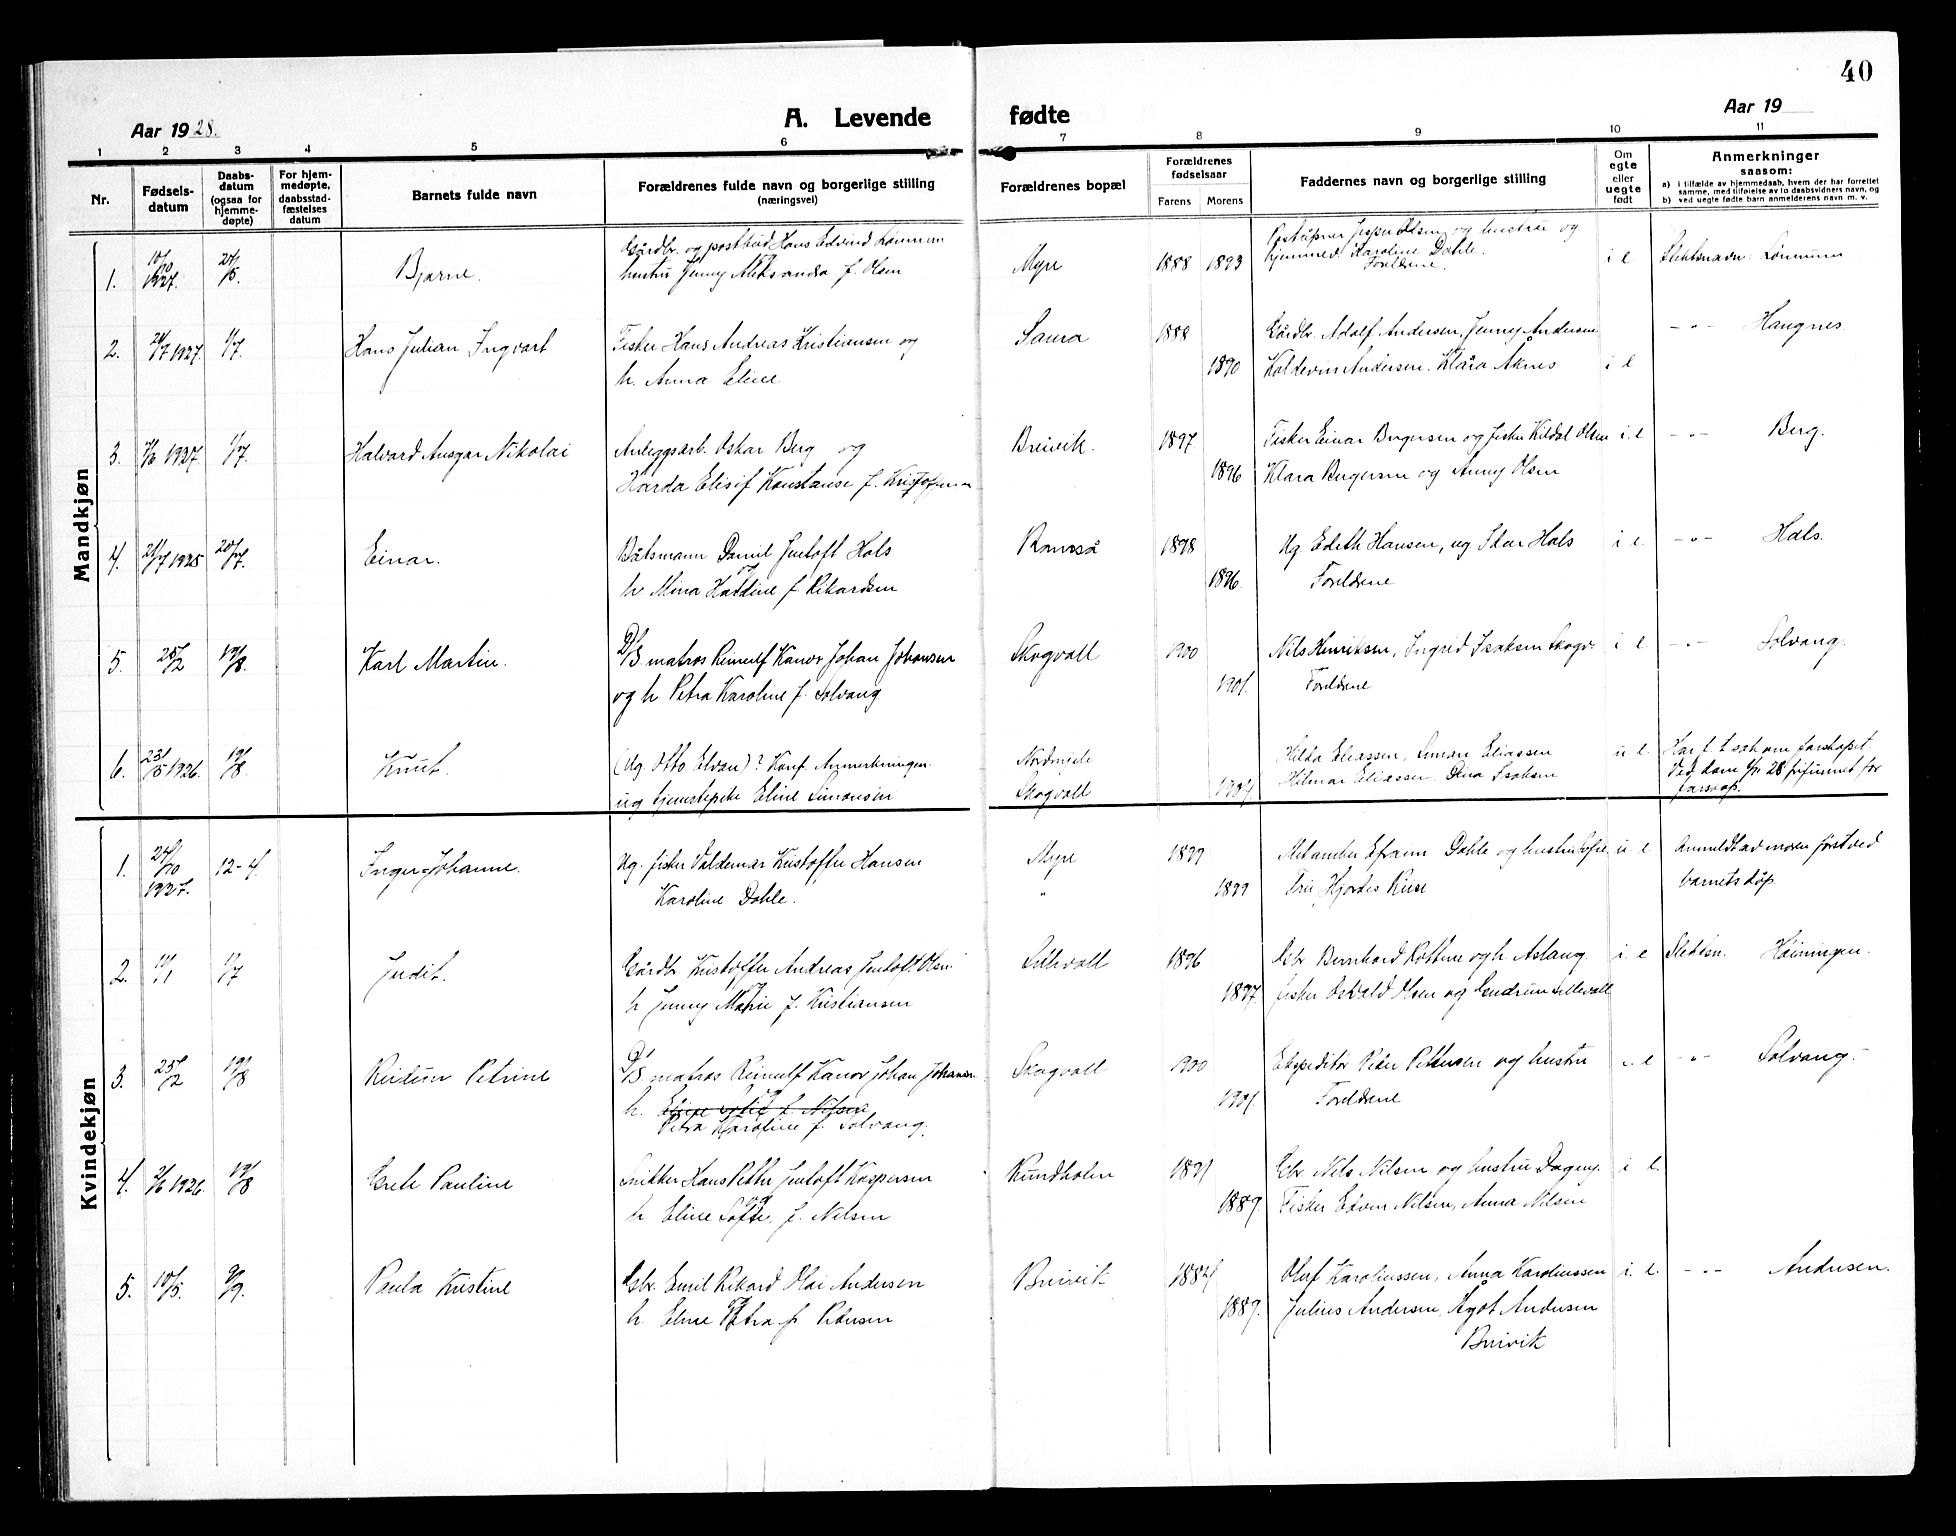 40
Aar 1928.
A. Levende
fødte
Aar 19
1 2 3 4 5 6 7 8 9 10 11
Nr.
Fødsels-
datum
Daabs-
datum
(ogsaa for
hjemme-
døpte)
For hjem-
medøpte,
daabsstad-
fæstelses
datum
Barnets fulde navn
Forældrenes fulde navn og borgerlige stilling
(næringsvei)
Forældrenes bopæl
Forældrenes
fødselsaar
Farens Morens
Faddernes navn og borgerlige stilling
Om
egte
eller
uegte
født
Anmerkninger
saasom:
a) i tilfælde av hjemmedaab, hvem der har forrettet
samme, med tilføielse av to daabsvidners navn, og
b) ved uegte fødte barn anmelderens navn m. v.
Mandkjøn
1. 10/10 1927. Bjarne. Gårdbr. og postbud Hans Edvind
hustru Jenny Aleksandra f. Olsen
Myre 1888 1893 Jesper Olsen og hustru og
Karoline Dahle.
Foreldrene.
i e Slektsnavn:
2. 1927. 1/7. Hans Julian Ingvart
Fisker Hans Andreas Kristiansen og
h. Anna Eline
Saura 1888
1890
Gårdbr. Adolf Andersen, Jenny Andersen
Koldevin Andersen. Klara Åknes
i e
-"- Haugnes.
3. 1927. 1/7. Halvard Ansgar Nikolai
Anleggsarb. Oskar Berg og
Harda Elisif Konstanse f. Kristoffersen
Breivik. 1897.
1896
Fisker Einar Bergersen og fisker Kildal Olsen
Klara Bergersen og Anny Olsen
i. e -"- Berg.
4. 1925 Einar.
Båtsmann Daniel Jentoft Hals
h Mina Haldine f. Rikardsen
Ramså 1898
1896.
Ug. Edith Hansen, ug. Hals
Foreldrene
i e. -"- Hals.
5. 25/2 19/8. Karl Martin.
D/S matros Reinulf Kanor Johan Johansen
og h Petra Karoline f. Solvang
Skogvoll 1900
1901.
Nils Henriksen, Ingrid Isaksen Skogv.
Foreldrene
i e. -"- Solvang.
6. 23/5 1926. 19/8. Knut.
(Ug. Otto Elvan)? Konf. Anmerkningen.
ug tjenestepike Eline Simonsen
Nordmjele
Skogvoll
Hilda Eliassen, Simon Eliassen
Hilmar Eliassen. Dina Isaksen
u e.
Har f. t. sak om farskapet.
Ved dom 28 frifunnet for
farskap.
Kvindekjøn
1. 24/10 1927. 12-4. Inger Johanne.
Ug. fisker Valdemar Kristoffer Hansen
Karoline Dahle.
Myre 1899
" 1899
Efraim Dahle og hustru Sofie
u e
Anmeldt av moren først ved
barnets dåp.
2. 1/7 Judit.
Gårdbr Kristoffer Andreas Jentoft Olsen
h Jenny Marie f. Kristiansen
Sellevoll 1896
1897
Gbr Bernhard og h. Aslaug.
fisker Osvald Olsen og Gudrun Sellevoll
i. e
3. 25/2 19/8 Kristine Petrine
D/S matros Reinulf Kanor Johan Johansen
h. Eline Sofie f. Nilsen
Petra Karoline f. Solvang.
Skogvoll 1900
1901.
Ekspeditør Peder Pettersen og hustru
Foreldrene
i. e -"- Solvang.-
4. 1926. 19/8 Grete Pauline
Snikker Hans Petter Jentoft Kaspersen
h Eline Sofie, f. Nilsen
Rundholen 1891
1889.
Gbr. Nils Nilsen og hustru Dagny.
Fisker Edvin Nilsen, Anna Nilsen
i e.
5. 10/5. 9/9. Paula Kristine
Gbr. Emil Rikard Olai Andersen
h. Eline Petra f. Pedersen
Breivik 1884
1889.
Oluf Karoliussen, Anna Karoliussen
Julius Andersen, Ågot Andersen
Breivik
i. e. -"- Andersen.